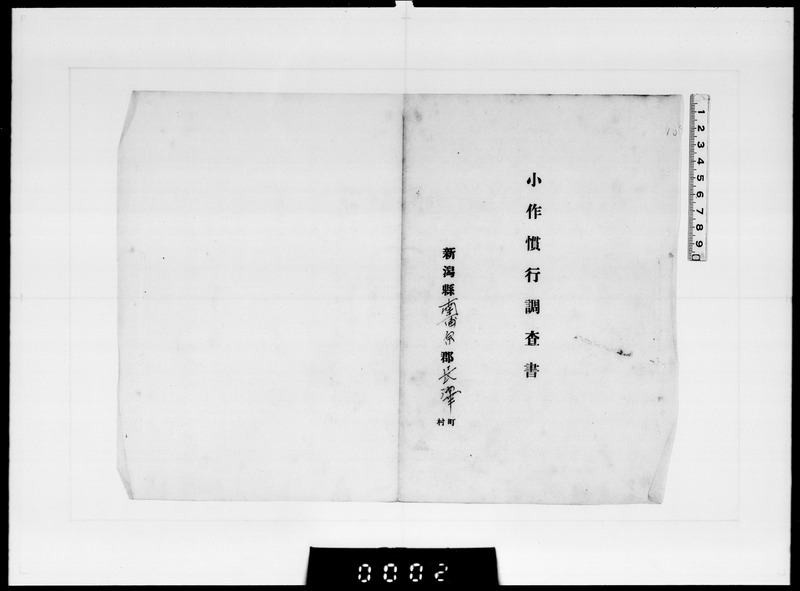 小作慣行調査書
新潟縣南蒲原郡長澤町村
1 2 3 4 5 6 7 8 9
0002